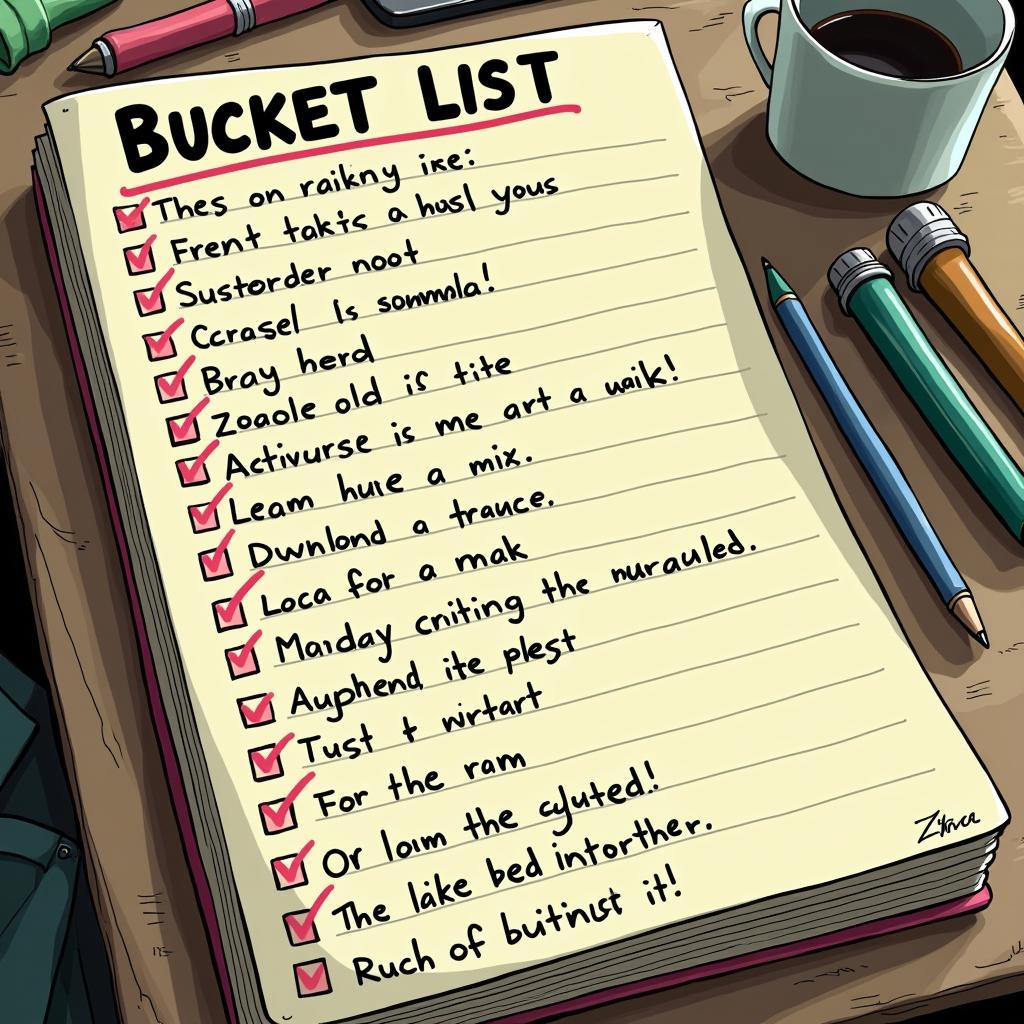 BUCKET LIST
Thes on raikny ike:
Frent takts a husl yous
Sustorder noot
Ccrasel Is sommla!
Bray herd
Zoaole old if tite
Activurse is me art a waik!
Leam hure a mix.
Dwnlond a trauce.
Loca for a mak
Maıday cniting the nurauled.
Auphend ite plest
Tust t wirtart
For the ram
Or loım the
The låke bed intorther.
Ruch of buitinust it!